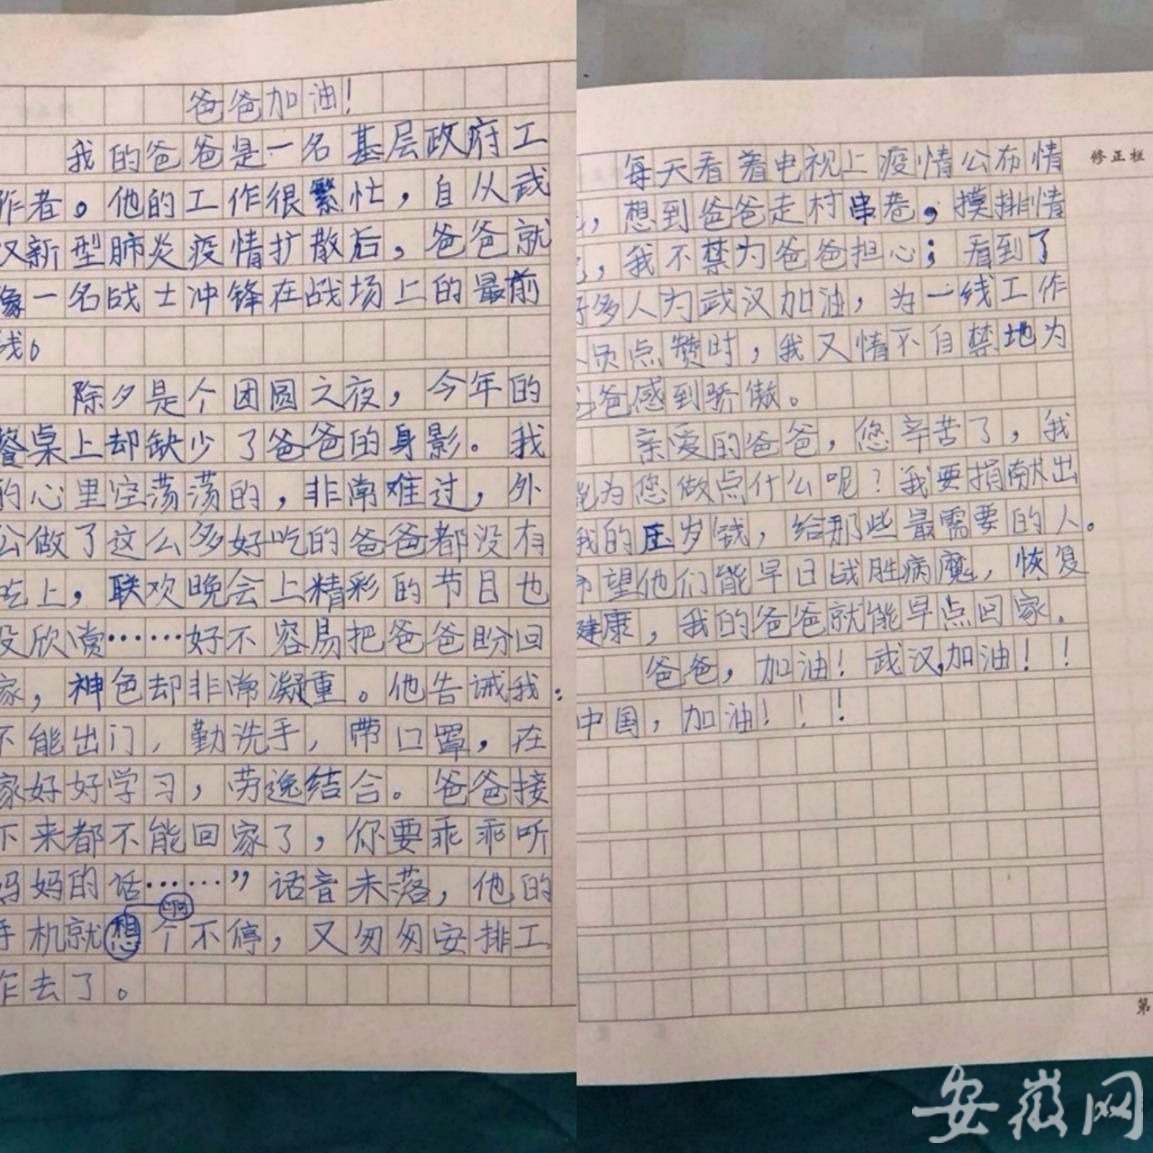 爸爸加油!
我的爸爸是一名基层政府工
作者。他的工作很繁忙，自从武
汉新型肺炎疫情扩散后，爸爸就
像一名战士冲锋在战场上的最前
线。
除夕是个团圆之夜，今年的
餐桌上却缺少了爸爸的身影。我
的心里空荡荡的，非常难过，外
公做了这么多好吃的爸爸都没有
吃上，联欢晚会上精彩的节目也
没欣赏……好不容易把爸爸盼回
家，神色却非常凝重。他告诫我：
不能出门，勤洗手，带口罩，在
家好好学习，劳逸结合。爸爸接
下来都不能回家了，你要乖乖听
妈妈的话……”话音未落，他的
响
手机就想个不停，又匆匆安排工
作去了。
每天看着电视上疫情公布情
，想到爸爸走村串巷，摸排情
，我不禁为爸爸担心；看到了
好多人为武汉加油，为一线工作
人员点赞时，我又情不自禁地为
爸爸感到骄傲。
亲爱的爸爸，您辛苦了，我
能为您做点什么呢？我要捐献出
我的压岁钱，给那些最需要的人。
希望他们能早日战胜病魔，恢复
健康，我的爸爸就能早点回家。
爸爸，加油！武汉,加油！！
中国，加油！！！
修正栏
第
安徽网